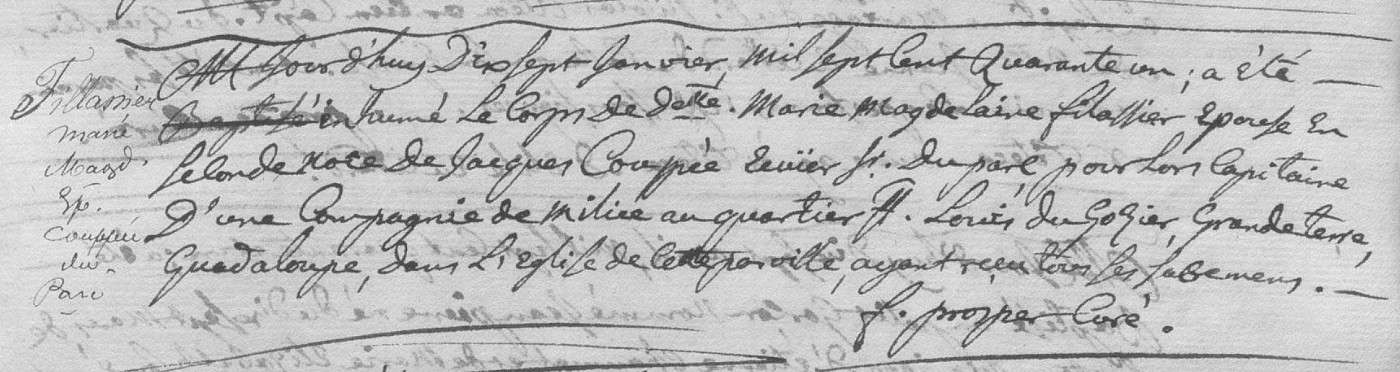 Fillassier
marie
Magd.
Ep.
Couppée
du
Parc
Au Jourd'huy Dix sept Janvier, mil sept Cent Quarante un ; a èté —
Baptisé inhumé Le Corps de d.elle. Marie Magdelaine fillassier Epouse En
Seconde Noce de Jacques Couppée Ecuïer Sr. Duparc pour Lors Capitaine
D'une Compagnie de milice au quartier St. Loüis du Gozier, Grande terre,
Guadaloupe, dans L'Eglise de Cette paroisse, ayant reçeu tous ses sacremens. —
f. prosper Curé.